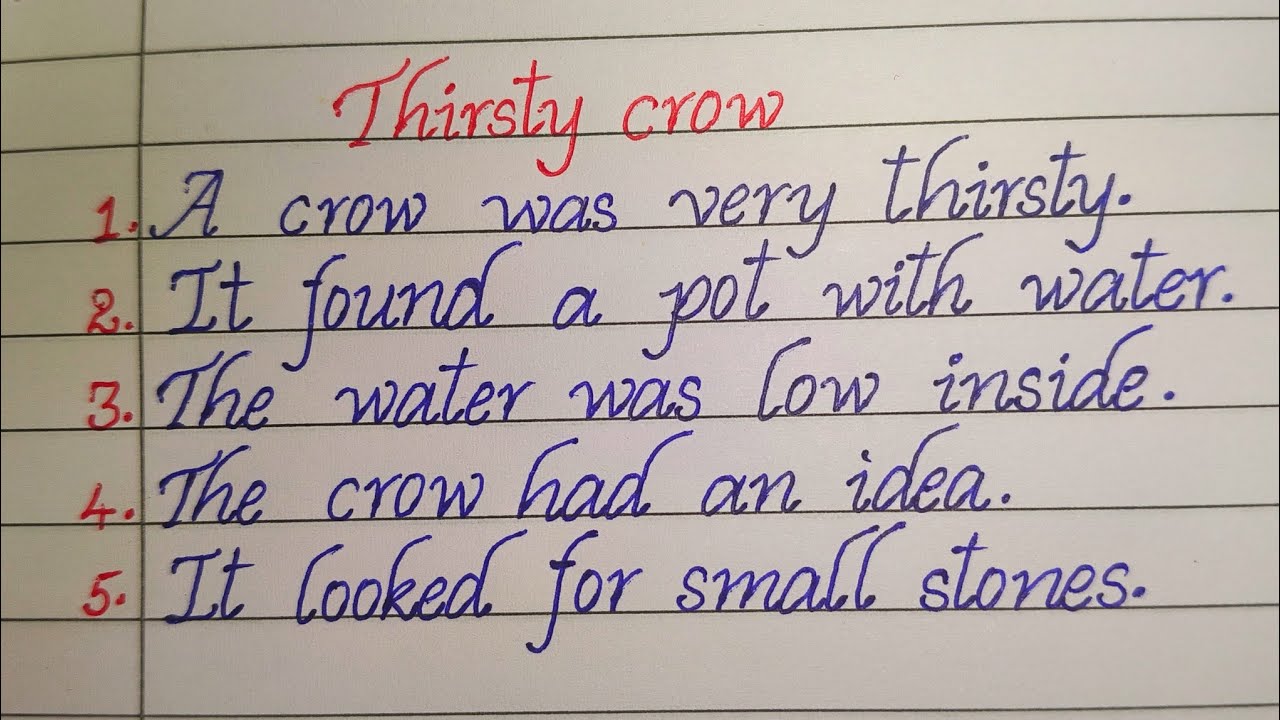 Thirsty crow
1. A crow was very thirsty.
2. It found a pot with water.
3. The water was low inside.
4. The crow had an idea.
5. It looked for small stones.